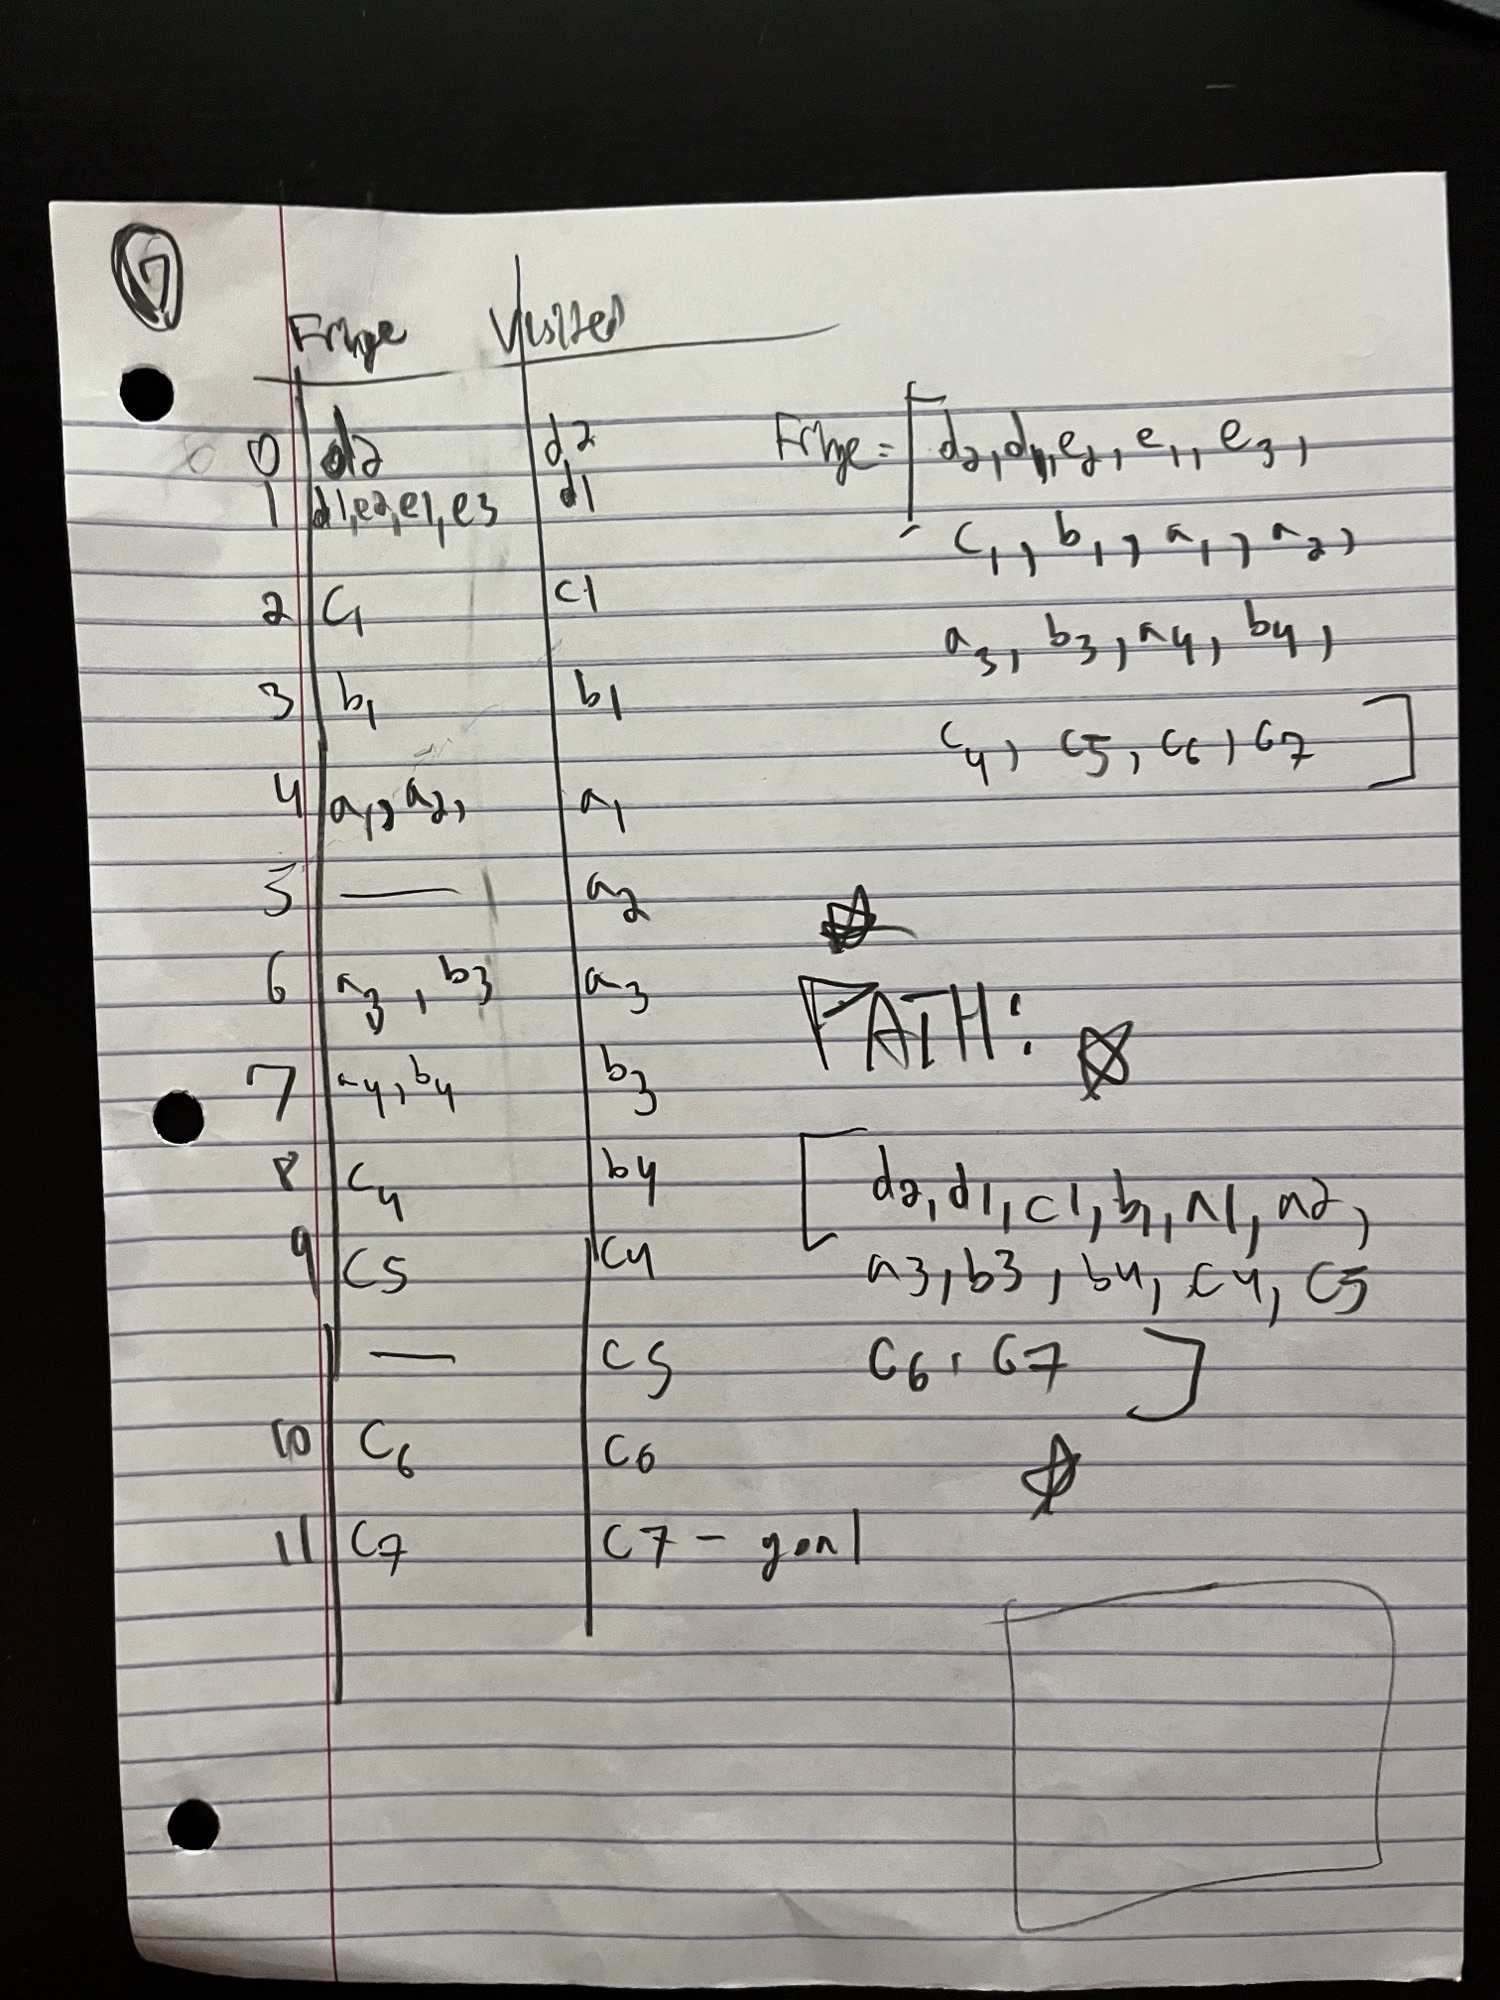 7
Fringe Visited
0 d2 d2
1 d1,e2,e1,e3 d1
2 C1 c1
3 b1 b1
4 a1, a2, a1
5 — a2
6 a3, b3 a3
7 a4, b4 b3
8 C4 b4
9 C5 C4
— C5
10 C6 C6
11 C7 C7 - goal
Fringe = [d2, d1, e2, e1, e3,
C1, b1, a1, a2,
a3, b3, a4, b4,
C4, C5, C6, C7]
PATH:
[d2, d1, c1, b1, a1, a2,
a3, b3, b4, C4, C5
C6, C7]